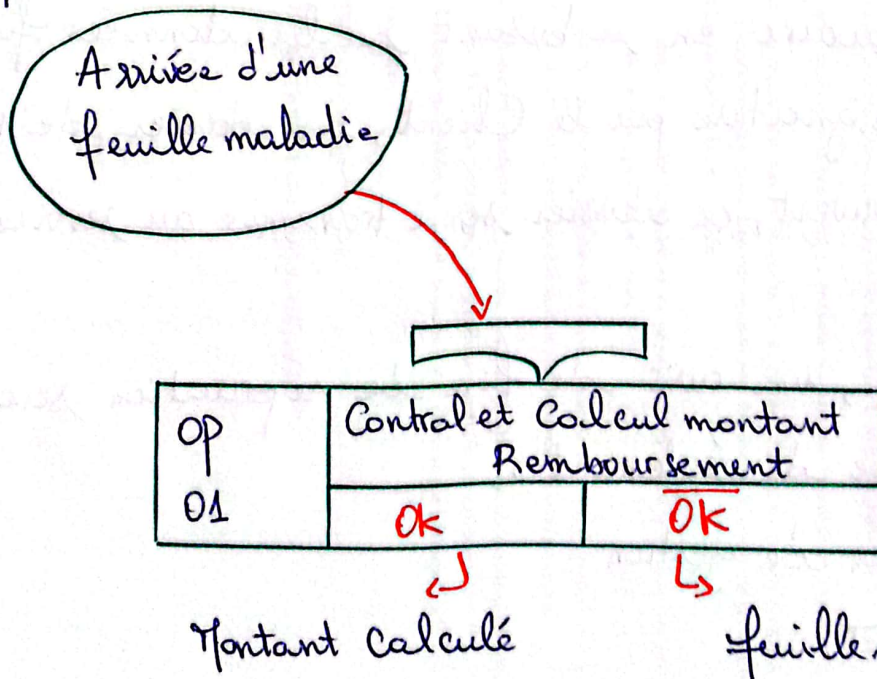 Arrivée d'une
feuille maladie
OP
01
Contral et Calcul montant
Remboursement
OK
OK
Montant Calculé
feuille